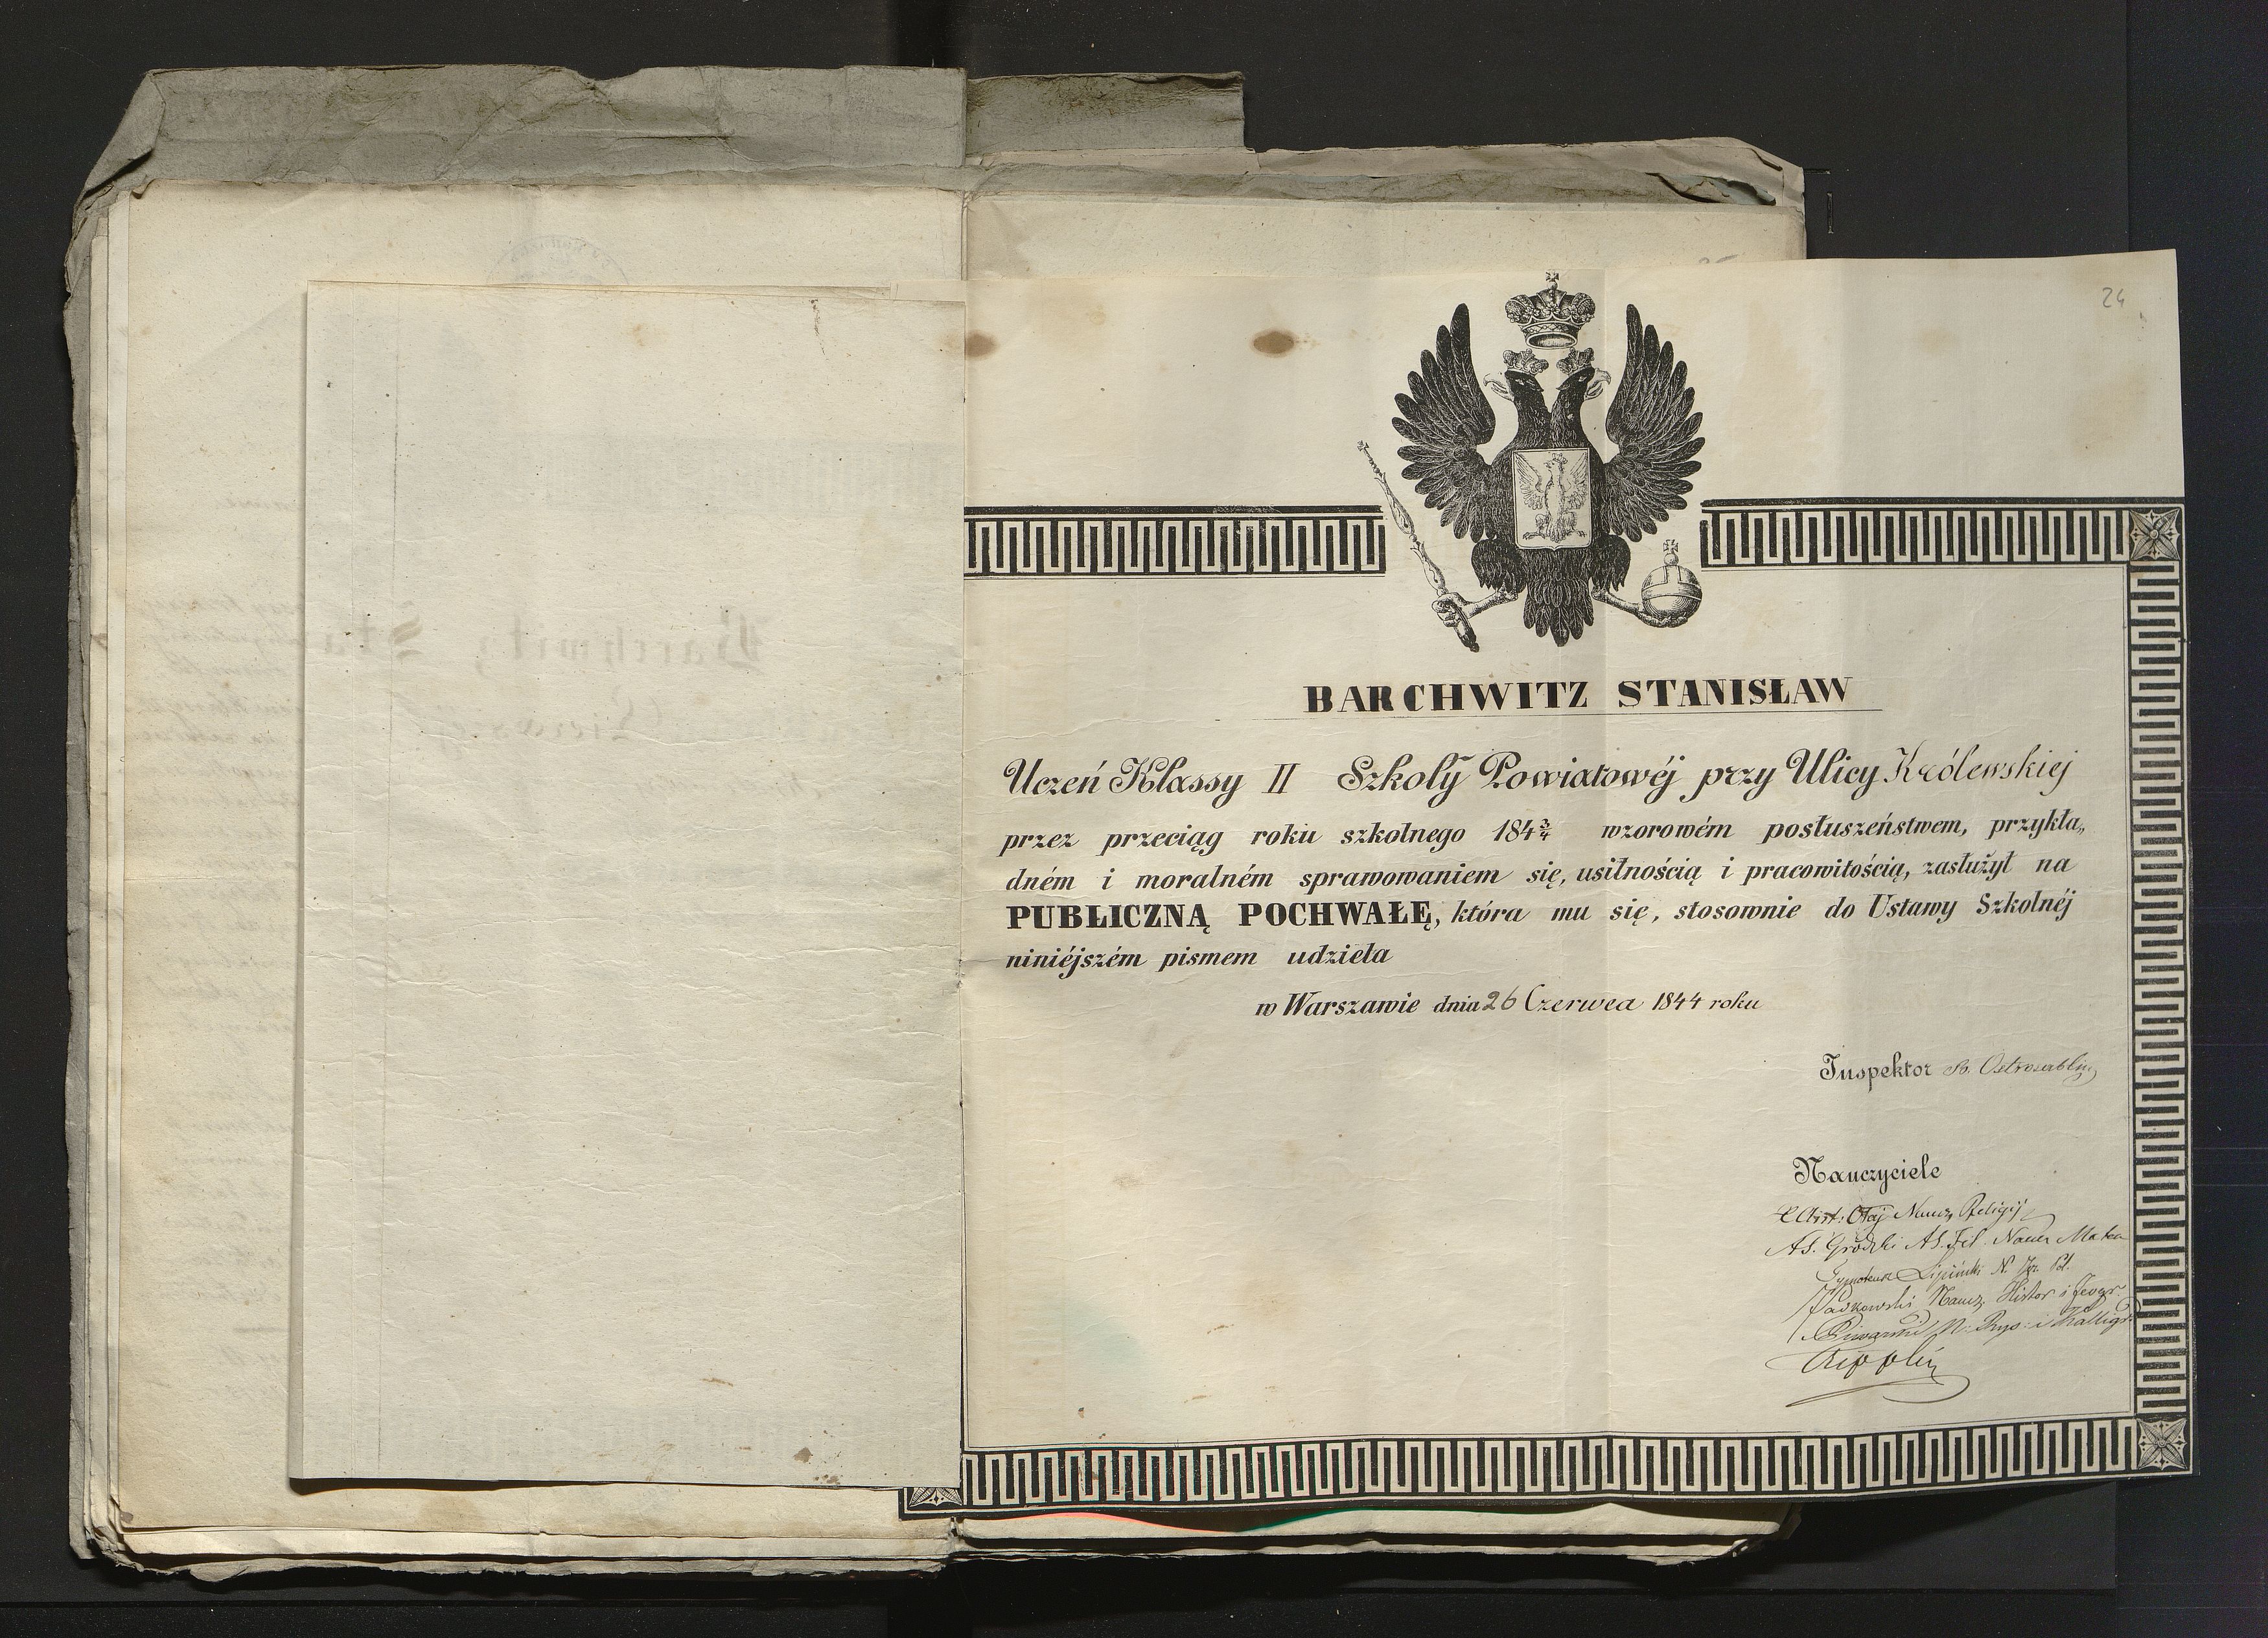 24
BARCHWITZ STANISŁAW
Uczeń Klassy II Szkoły Powiatowéj przy Ulicy Królewskiej
przez przeciąg roku szkolnego 184¾ wzorowém posłuszeństwem, przykła„
dném i moralném sprawowaniem się, usilnością i pracowitością, zasłużył na
PUBLICZNĄ POCHWAŁĘ, która mu się, stosownie do Ustawy Szkolnéj
niniéjszém pismem udziela
w Warszawie dnia 26 Czerwca 1844 roku
Inspektor
Nauczyciele
Naucz. Religij
Lipiński N. Pol.
Naucz. Histor i Jeogr.
N. Rys. i Kalligr.